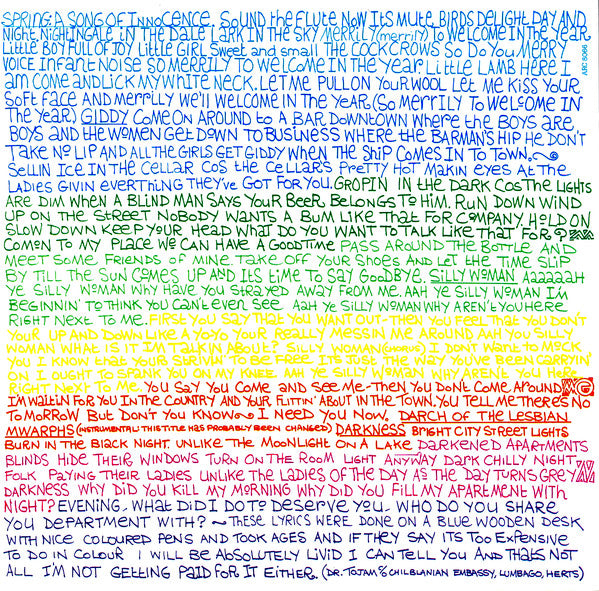 SPRING: A SONG OF INNOCENCE. SOUND the FLUTE NOW ITS MUTE, BIRDS DELIGHT DAY AND
NIGHT, NIGHTINGALE IN THE DALE LARK IN THE SKY MERRILY (merrily) TO WELCOME IN THE YEAR
Little BOY FULL OF JOY Little GIRL SWEET and small THE COCK CROWS SO DO YOU MERRY
VOICE INFANT NOISE SO MERRILY TO WELCOME IN THE YEAR. Little LAMB HERE I
am COME AND LICK MY WHITE NECK. LET ME PULL ON YOUR WOOL LET ME KISS YOUR
SOFT FACE AND MERRILY WE'LL WELCOME IN THE YEAR (SO MERRILY TO WELCOME IN
THE YEAR) GIDDY COME ON AROUND to A BAR DOWNTOWN WHERE the BOYS ARE
BOYS AND the WOMEN GET DOWN TO BUSINESS WHERE THE BARMAN'S HIP HE DON'T
TAKE NO LIP AND ALL THE GIRLS GET GIDDY WHEN THE SHIP COMES IN TO TOWN.
SELLIN ICE IN THE CELLAR COS the CELLAR'S PRETTY HOT MAKIN EYES AT THE
LADIES GIVIN EVERTHING THEY'VE GOT FOR YOU. GROPIN IN the DARK COS THE LIGHTS
ARE DIM WHEN A BLIND MAN SAYS YOUR BEER BELONGS TO HIM. RUN DOWN WIND
UP ON THE STREET NOBODY WANTS A BUM LIKE THAT FOR COMPANY HOLD ON
SLOW DOWN KEEP YOUR HEAD WHAT DO YOU WANT TO TALK LIKE THAT FOR?
COMON TO MY PLACE WE CAN HAVE A GOODTIME PASS AROUND THE BOTTLE AND
MEET SOME FRIENDS OF MINE TAKE OFF YOUR SHOES AND LET THE TIME SLIP
BY TILL THE SUN COMES UP AND ITS TIME TO SAY GOODBYE. SILLY WOMAN AAAAAAH
YE SILLY WOMAN WHY HAVE YOU STRAYED AWAY FROM ME. AAH YE SILLY WOMAN I'M
BEGINNIN' TO THINK YOU CAN'T EVEN SEE AAH YE SILLY WOMAN WHY AREN'T YOU HERE
RIGHT NEXT TO ME. FIRST YOU SAY THAT YOU WANT OUT THEN YOU FEEL THAT YOU DON'T
YOUR UP AND DOWN LIKE A YOYO YOUR REALLY MESSIN ME AROUND AAH YOU SILLY
WOMAN WHAT IS IT I'M TALKIN ABOUT? SILLY WOMAN (CHORUS) I DON'T WANT TO MOCK
YOU I KNOW THAT YOUR STRIVIN TO BE FREE ITS JUST THE WAY YOU'VE BEEN CARRYIN'
ON I OUGHT TO SPANK YOU ON MY KNEE AAH YE SILLY WOMAN WHY ARENT YOU HERE
RIGHT NEXT TO ME. YOU SAY YOU COME AND SEE ME - THEN YOU DON'T COME AROUND
I'M WAITIN FOR YOU IN THE COUNTRY AND YOUR FLITTIN' ABOUT IN THE TOWN. YOU TELL ME THERE'S NO
TOMORROW BUT DON'T YOU KNOW I NEED YOU NOW. DARCH OF THE LESBIAN
MWARPHS (INSTRUMENTAL: THIS TITLE HAS PROBABLY BEEN CHANGED) DARKNESS BRIGHT CITY STREET LIGHTS
BURN IN THE BLACK NIGHT. UNLIKE THE MOONLIGHT ON A LAKE DARKENED APARTMENTS
BLINDS HIDE THEIR WINDOWS TURN ON THE ROOM LIGHT ANYWAY DARK CHILLY NIGHT
FOLK PAYING THEIR LADIES UNLIKE THE LADIES OF THE DAY AS THE DAY TURNS GREY
DARKNESS WHY DID YOU KILL MY MORNING WHY DID YOU FILL MY APARTMENT WITH
NIGHT? EVENING - WHAT DID I DO TO DESERVE YOU - WHO DO YOU SHARE
YOU DEPARTMENT WITH? ~ THESE LYRICS WERE DONE ON A BLUE WOODEN DESK
WITH NICE COLOURED PENS AND TOOK AGES AND IF THEY SAY ITS TOO EXPENSIVE
TO DO IN COLOUR I WILL BE ABSOLUTELY LIVID I CAN TELL YOU AND THATS NOT
ALL I'M NOT GETTING PAID FOR IT EITHER. (DR. TOJAM % CHILBLANIAN EMBASSY, LUMBAGO, HERTS)